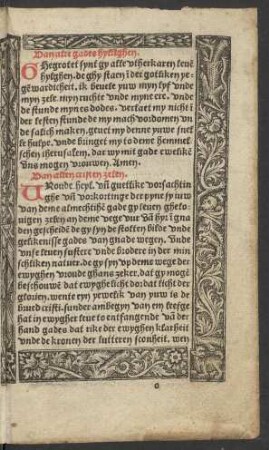 Van alle gades hylghen.
Ghegrotet synt gy alle vtherkaren leue
hylghen, de ghy staen ĩ der gotliken ye
gẽwardicheit, ik beuele yuw myn lyf vnde
myn zele, myn ruchte vnde myn ere, vnde
de stunde myn es dodes, vorlaet my nicht ĩ
der lesten stunde de my mach vordomen vñ
de salich maken, geuet my denne yuwe snel
le hulpe, vnde bringet my to deme hemmel
schen iherusalem, dar wy mit gade ewelikẽ
vns mogen vrouwen. Amen.
Van allen cristen zelen.
Vroude heyl, vñ guetlike vorsachtin
ghe vñ vorkortinge der pyne sy yuw
van deme almechtigẽ gade gy seuen gheloͤ
uigen zelen an deme vege vur
gescheidẽ de gy syn de stolten bilde vnde
gelikenisse gades van gnade wegen, vnde
vnse leuen sustere vnde brodere in der min
schliken naturer, de gy syn vp deme wege der
ewyghen vroude ghans zeker, dat gy mogẽ
beschouwẽ dat ewyghe licht do: dat licht der
glorien, wente eyn yewelik van yuw is de
bruet cristi, sunder ambegyn van em leefge
hat in ewygher leue to entfangende vã de:
hand gades dat rike der ewyghen klarheit
vnde de kronen der lutteren sconheit, wen